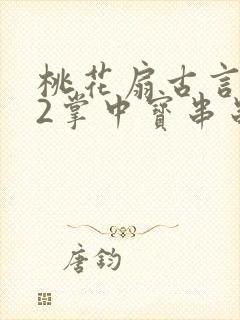 桃花扇古言
2掌中寶串
唐鈞